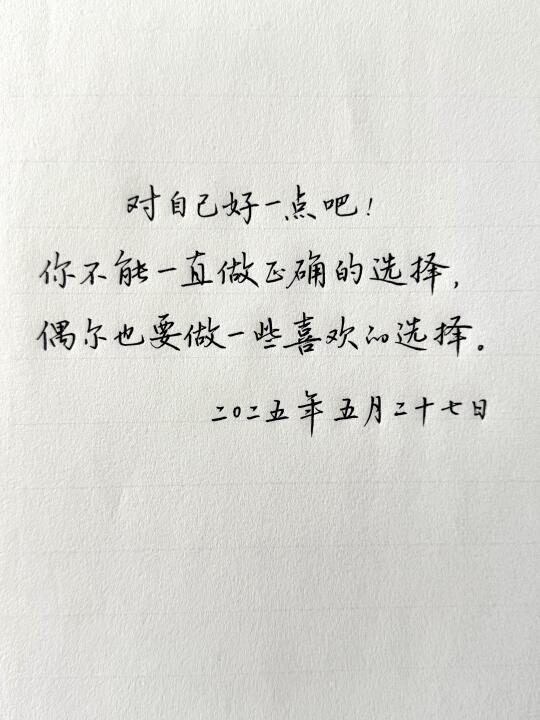 对自己好一点吧!
你不能一直做正确的选择,
偶尔也要做一些喜欢的选择。
二〇二五年五月二十七日